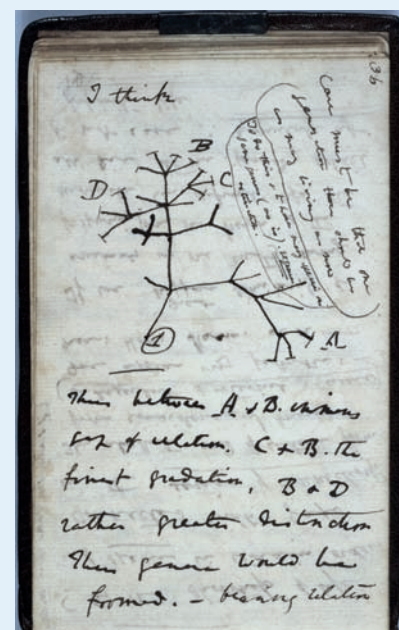 36
I think
Case must be that one
generation then should be
as many living as now
To do this & to have many species in
same genus (as is) requires
extinction
B
D
C
A
1
Thus between A. & B. immense
gap of relation. C & B. the
finest gradation, B & D
rather greater distinction
Thus genera would be
formed. — bearing relation